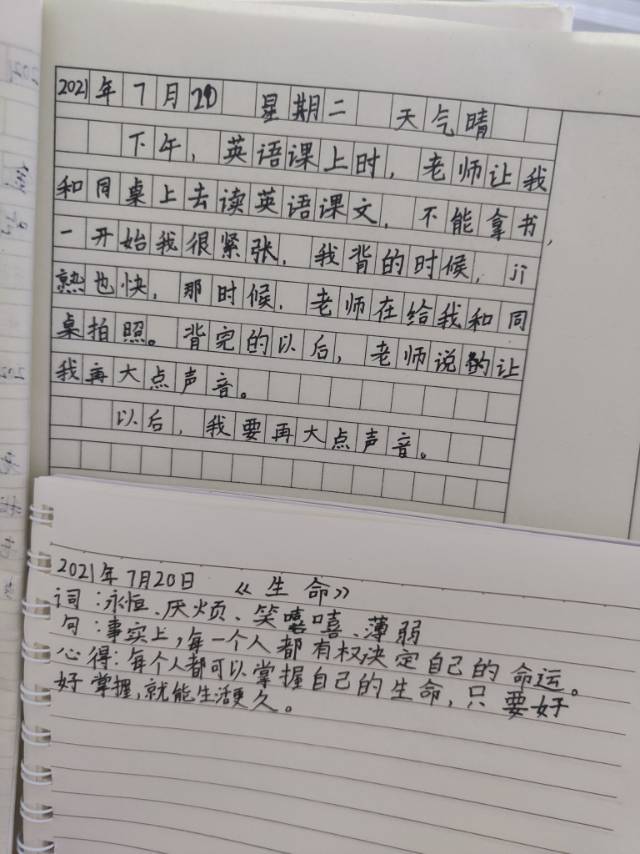 2021年7月20 星期二 天气晴
下午，英语课上时，老师让我
和同桌上去读英语课文，不能拿书，
一开始我很紧张，我背的时候，jī
熟也快，那时候，老师在给我和同
桌拍照。背完的以后，老师说的让
我再大点声音。
以后，我要再大点声音。
2021年7月20日 《生命》
词：永恒、厌烦、笑嘻嘻、薄弱
句：事实上，每一个人都有权决定自己的命运。
心得：每个人都可以掌握自己的生命，只要好
好掌握，就能生活更久。